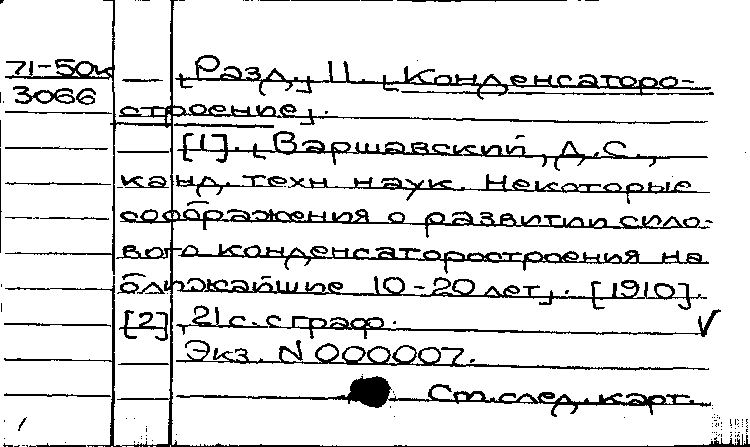 71-50к
3066
— [Разд.] II. [Конденсаторо-
строение].
[1]. [Варшавский, Д.С.,
канд. техн наук. Некоторые
соображения о развитии сило-
вого конденсаторостроения на
ближайшие 10-20 лет]. [1910].
[2], 21 с. с граф. V
Экз. N 000007.
См. след. карт.